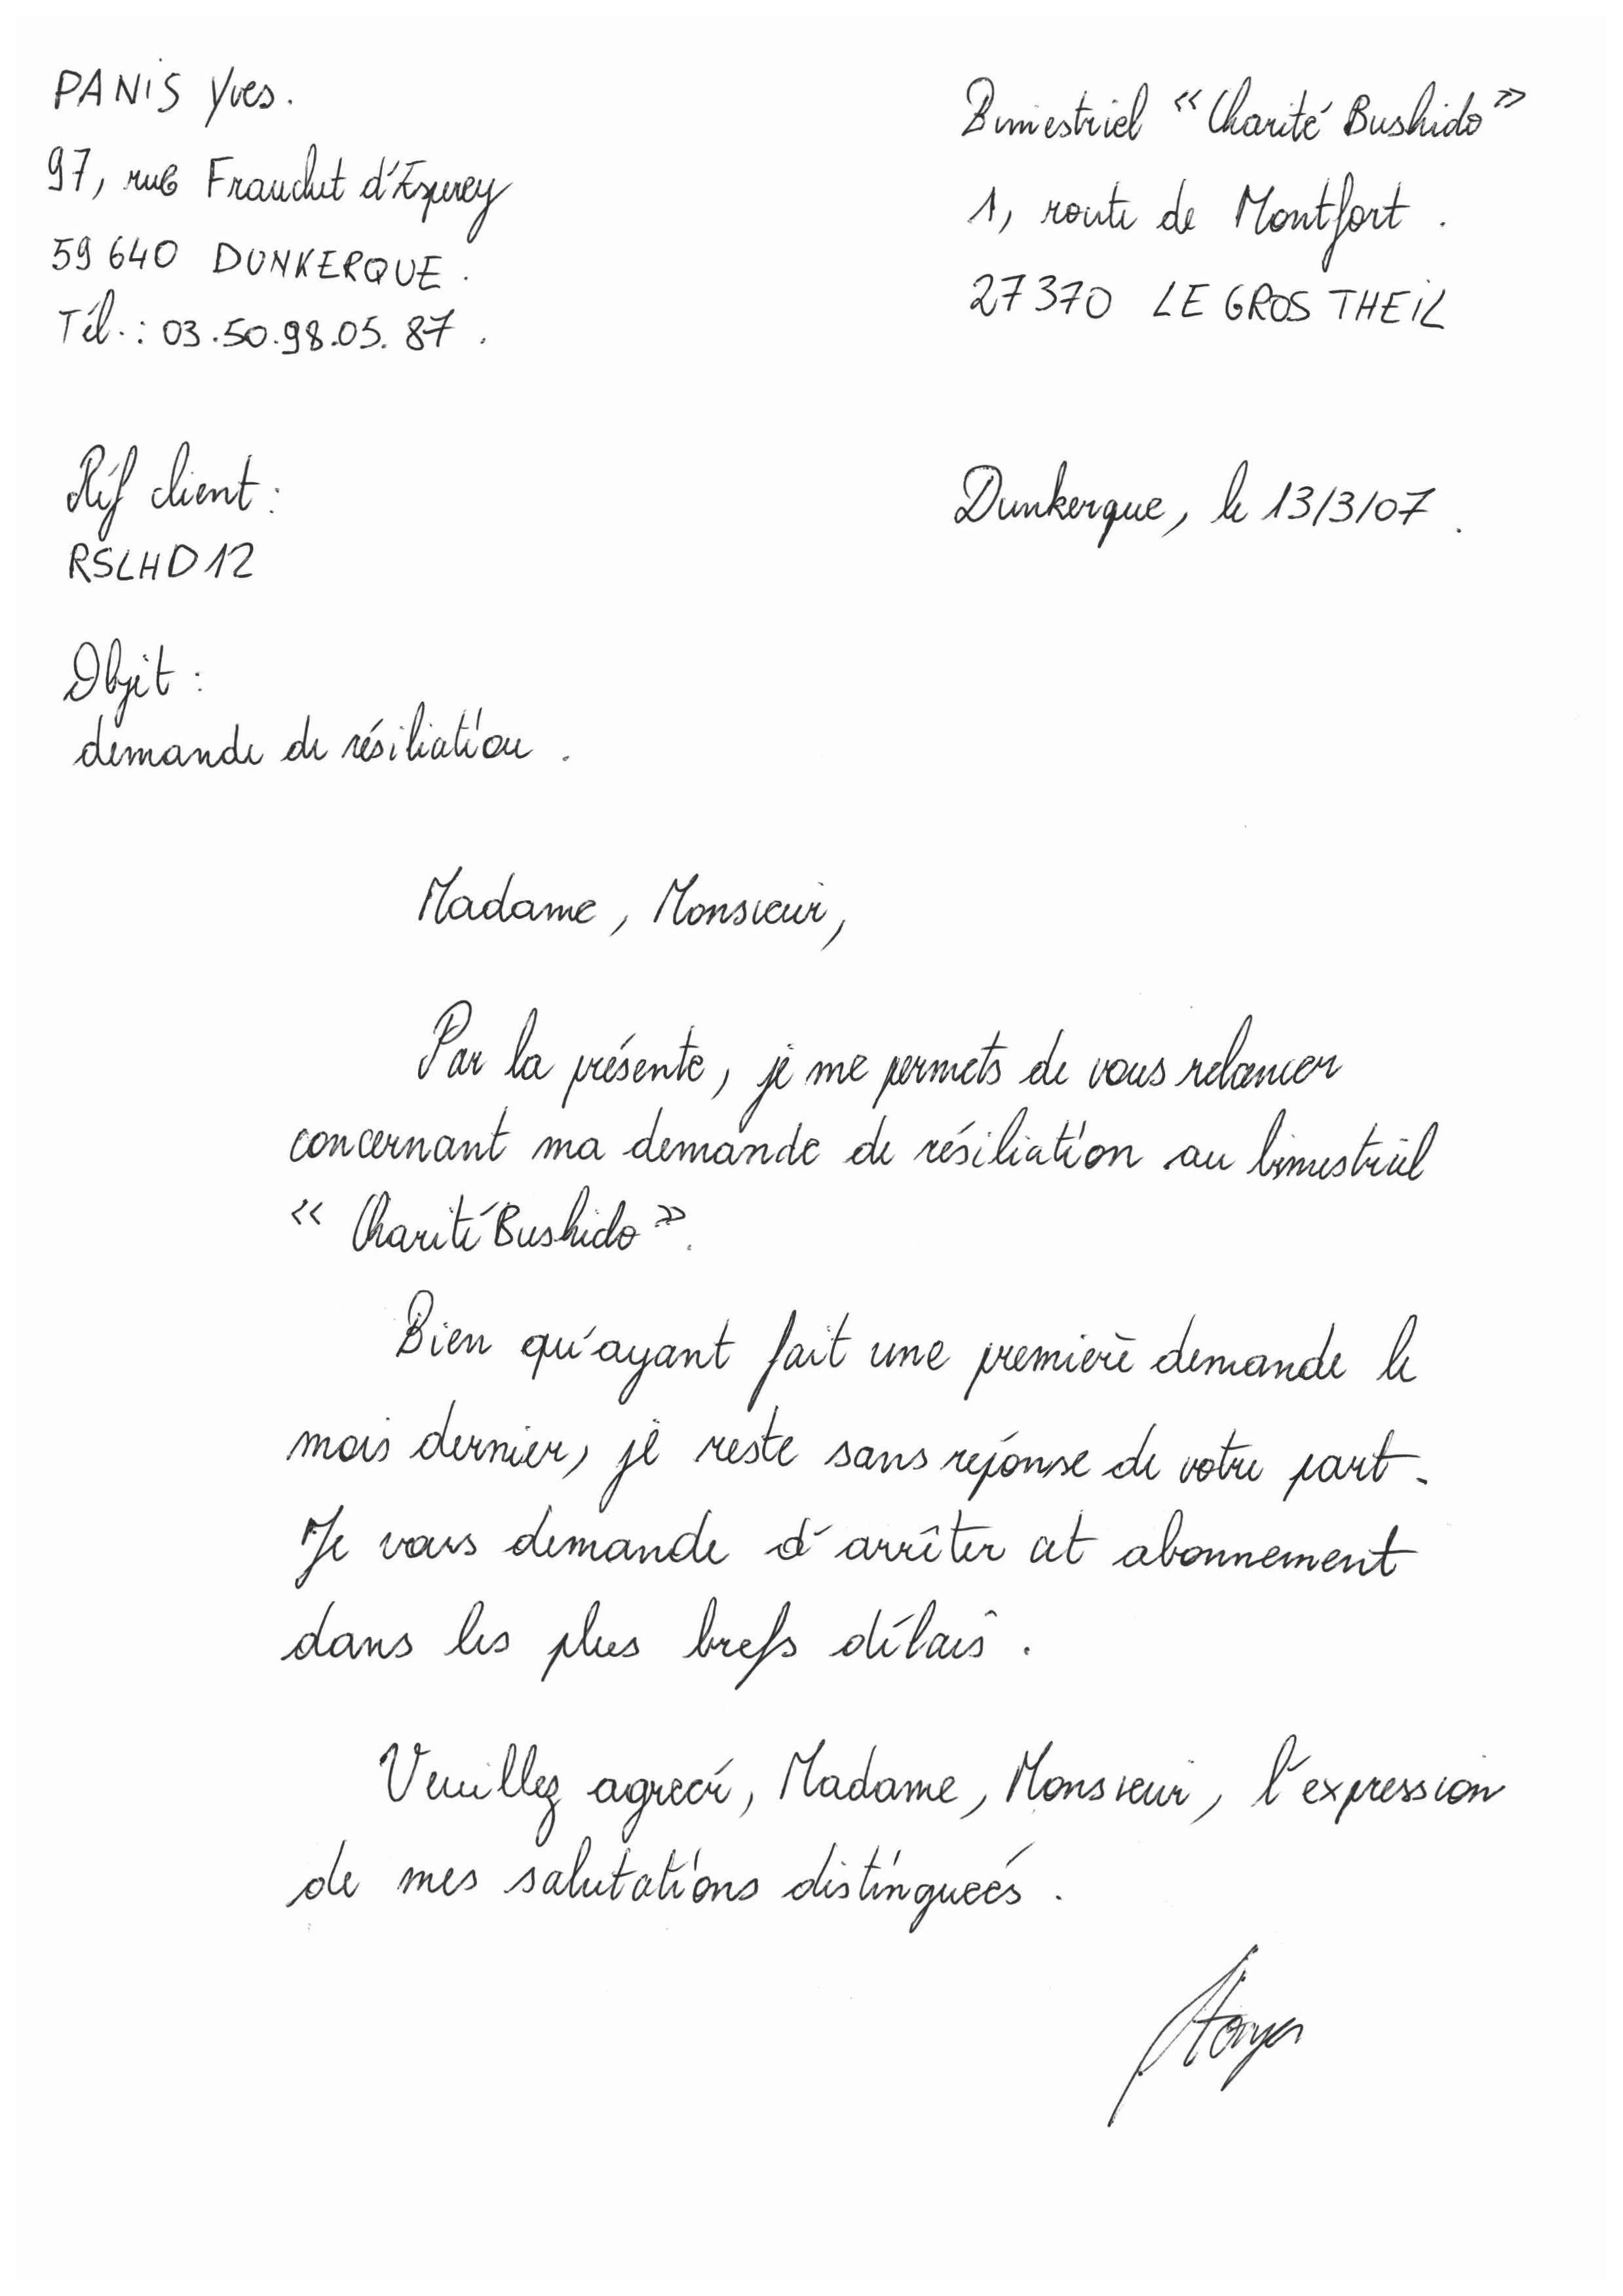 PANIS Yves.
97, rue Frauchut d'Esperey
59 640 DUNKERQUE.
Tél.: 03.50.98.05.87.
Bimestriel "Charité Bushido"
1, route de Montfort.
27370 LE GROS THEIL
Réf client:
RSLHD12
Dunkerque, le 13/3/07.
Objet:
demande de résiliation.
Madame, Monsieur,
Par la présente, je me permets de vous relancer
concernant ma demande de résiliation au bimestriel
"Charité Bushido".
Bien qu'ayant fait une première demande le
mois dernier, je reste sans réponse de votre part.
Je vous demande d'arrêter cet abonnement
dans les plus brefs délais.
Veuillez agréer, Madame, Monsieur, l'expression
de mes salutations distinguées.